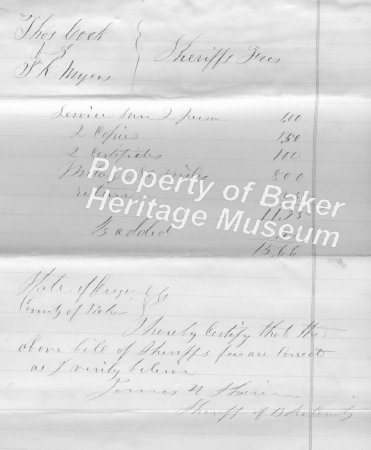 Thos Cook
vs
P K Myers
Sheriffs Fees
Service Sum 2 person 1,00
2 Copies 1,50
2 Certificates 100
8 00
return
11,25
added
13,66
Property of Baker
Heritage Museum
State of Oregon
County of Baker
I hereby Certify that the
above bill of Sheriffs fees are Correct
as I verily believe
James H
Sheriff of Baker County